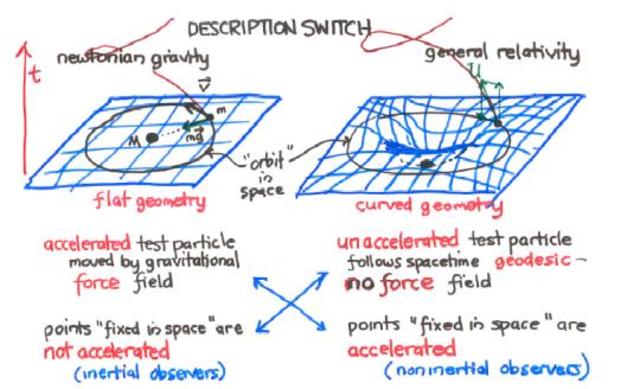 DESCRIPTION SWITCH
newtonian gravity
general relativity
t
v
m
M
mg
U
"orbit"
in
space
flat geometry
curved geometry
accelerated test particle
moved by gravitational
force field
unaccelerated test particle
follows spacetime geodesic –
no force field
points "fixed in space" are
not accelerated
(inertial observers)
points "fixed in space" are
accelerated
(noninertial observers)